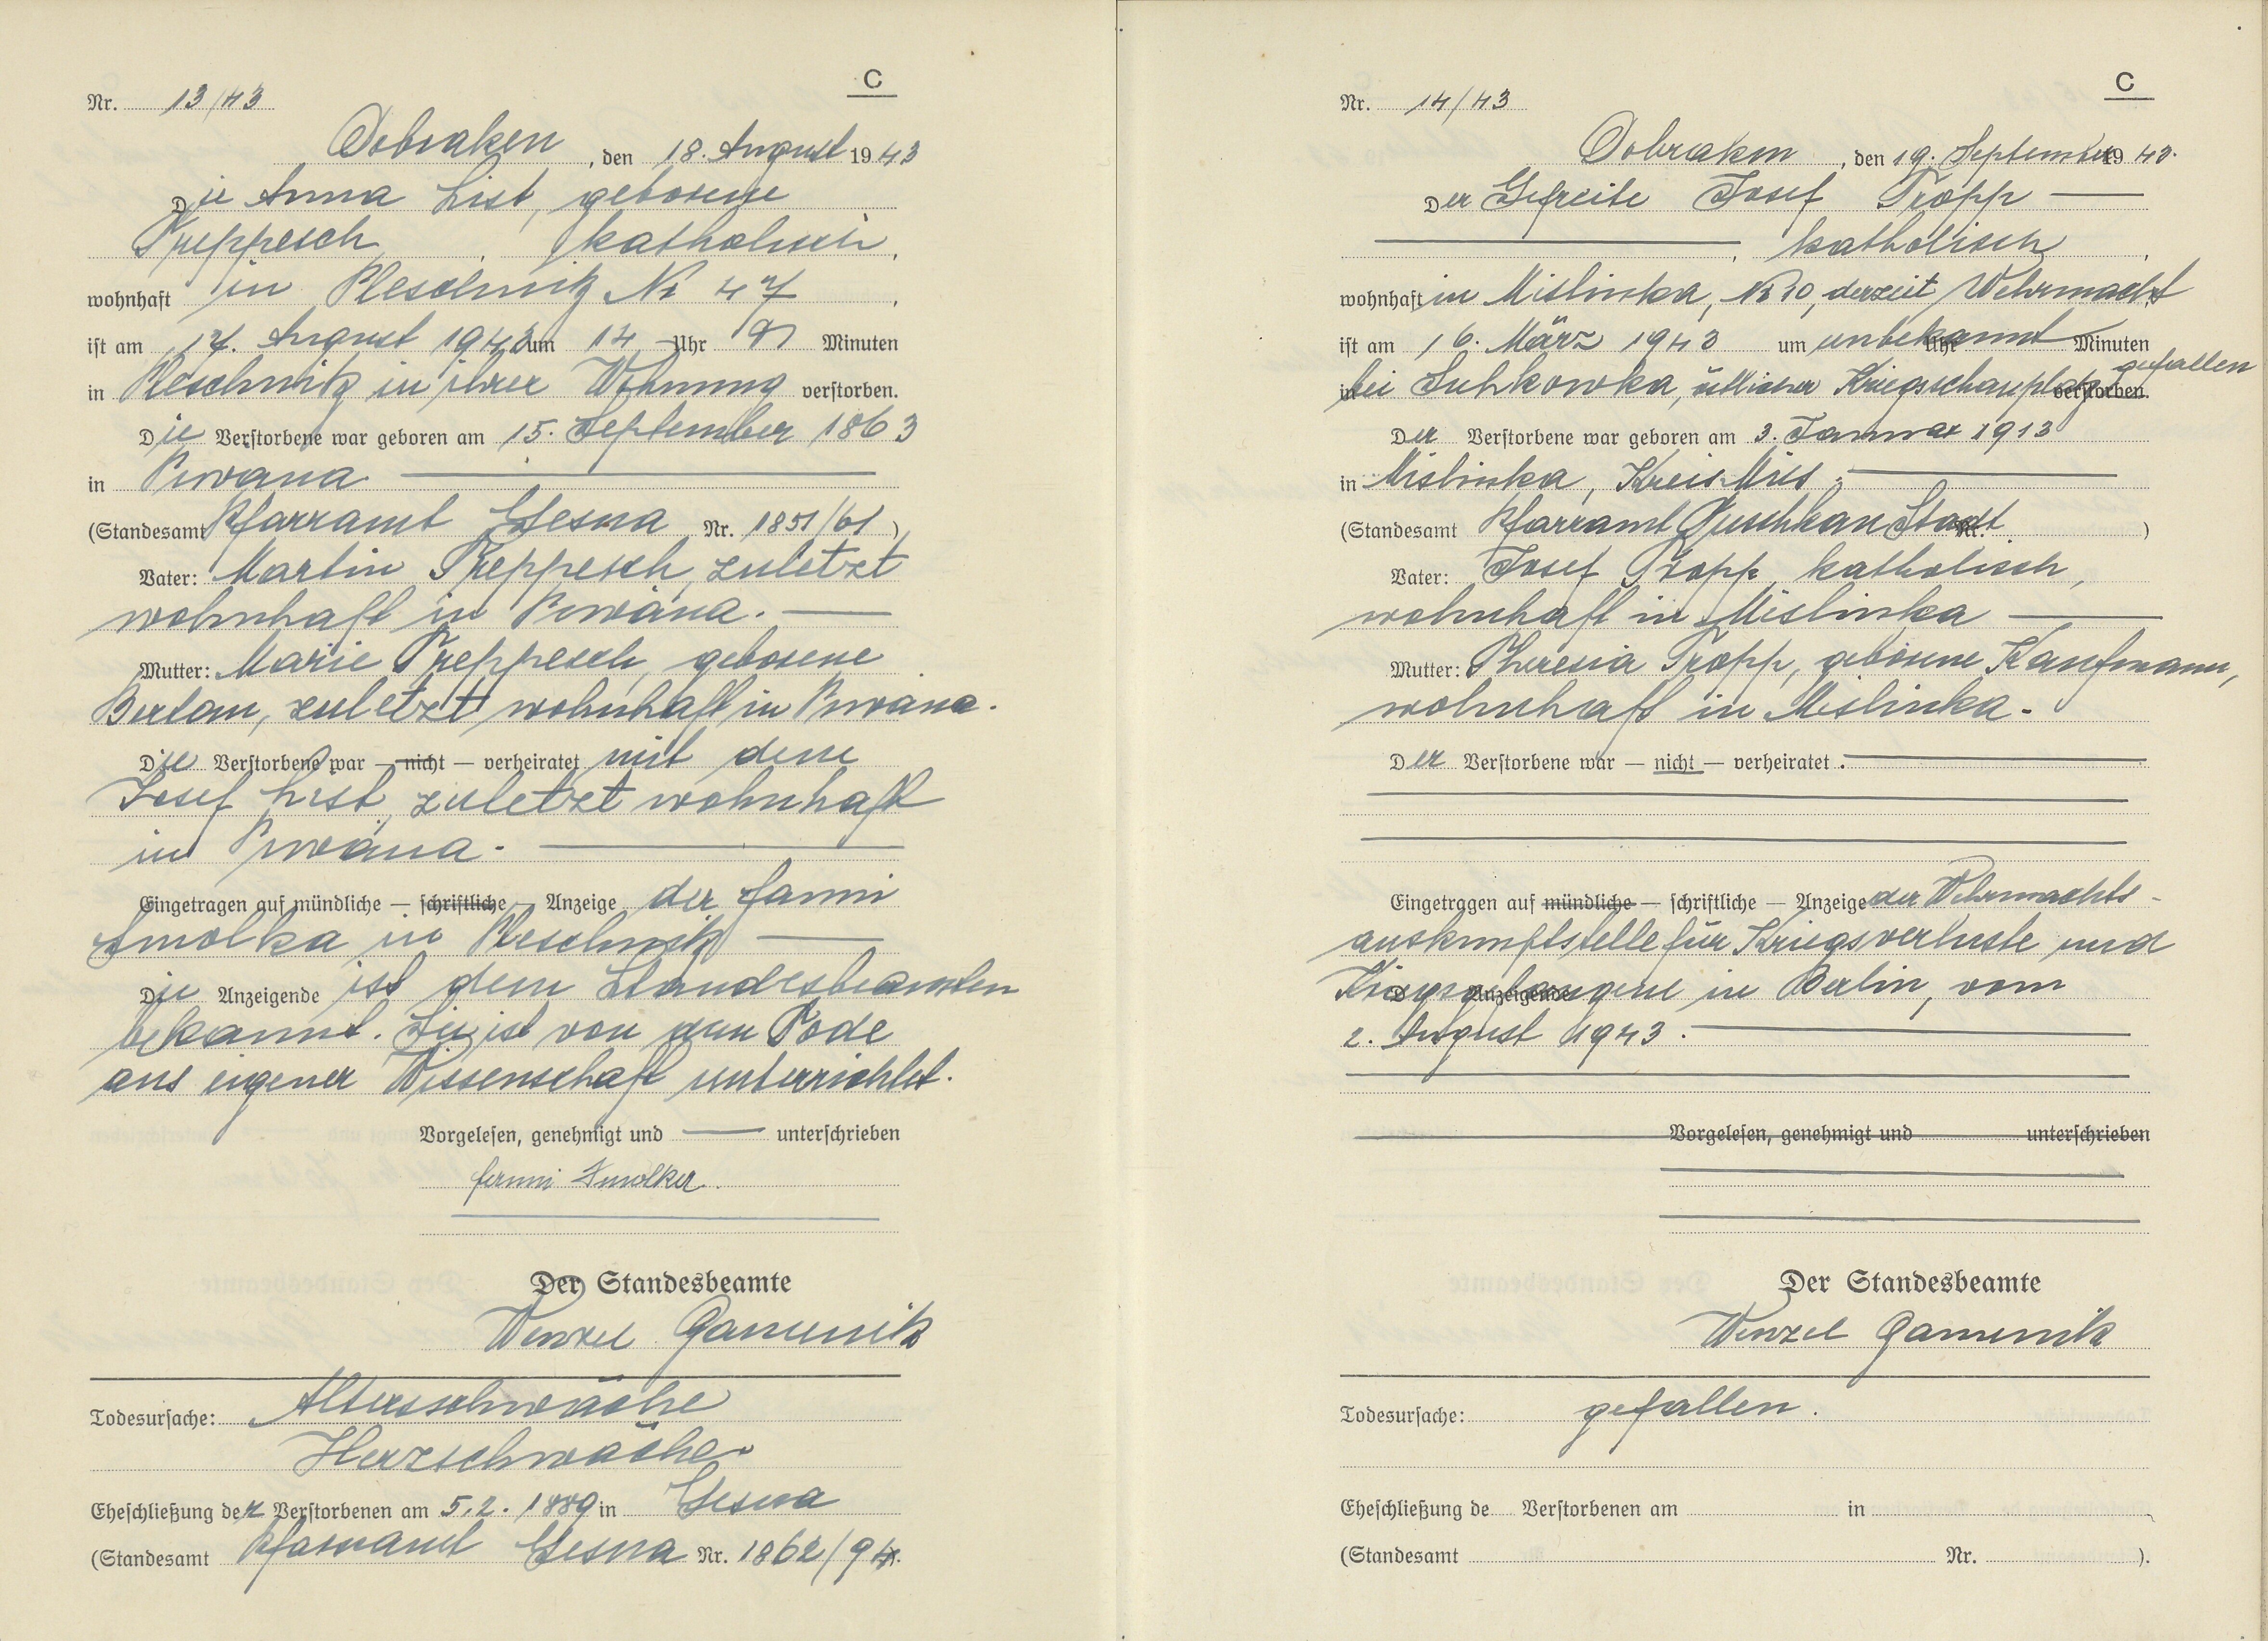 C
Nr. 13/43
Dobraken, den 18. August 1943
Die Anna List, geborene
Treppesch, katholisch,
wohnhaft in Pleschnitz Nr 47,
ist am 17. August 1943 um 14 Uhr Minuten
in Pleschnitz in ihrer Wohnung verstorben.
Die Verstorbene war geboren am 15. September 1863
in Piwana
(Standesamt Pfarramt Gesna Nr. 1851/61)
Vater: Martin Treppesch, zuletzt
wohnhaft in Piwana.
Mutter: Marie Treppesch, geborene
zuletzt wohnhaft in Piwana.
Die Verstorbene war — nicht — verheiratet mit dem
Josef List, zuletzt wohnhaft
in Piwana.
Eingetragen auf mündliche — schriftliche — Anzeige der Fanni
Smolka in Pleschnitz
Die Anzeigende ist dem Standesbeamten
bekannt. Sie ist von dem Tode
aus eigener Wissenschaft unterrichtet.
Vorgelesen, genehmigt und unterschrieben
Der Standesbeamte
Wenzel
Todesursache: Altersschwäche
Herzschwäche
Eheschließung der Verstorbenen am 5.2.1889 in Gesna
(Standesamt Pfarramt Gesna Nr. 1862/94.
C
Nr. 14/43
Dobraken, den 19. September 1943.
Der Gefreite Josef Tropp
, katholisch,
wohnhaft in Mislinka, Nr 10, derzeit Wehrmacht
ist am 16. März 1943 um unbekannt Uhr Minuten
in bei Suhkowka, östlicher Kriegsschauplatz gefallen verstorben.
Der Verstorbene war geboren am 3. Januar 1913
in Mislinka, Kreis Mies.
(Standesamt Pfarramt Tuschkau Stadt Nr. )
Vater: Josef Tropp, katholisch,
wohnhaft in Mislinka
Mutter: Theresia Tropp, geborene Kaufmann,
wohnhaft in Mislinka.
Der Verstorbene war — nicht — verheiratet.
Eingetragen auf mündliche — schriftliche — Anzeige der Wehrmachts-
auskunftstelle für Kriegsverluste und
D Anzeigende Kriegsgefangene in Berlin, vom
2. August 1943.
Vorgelesen, genehmigt und unterschrieben
Der Standesbeamte
Wenzel
Todesursache: gefallen.
Eheschließung de Verstorbenen am in
(Standesamt Nr. ).